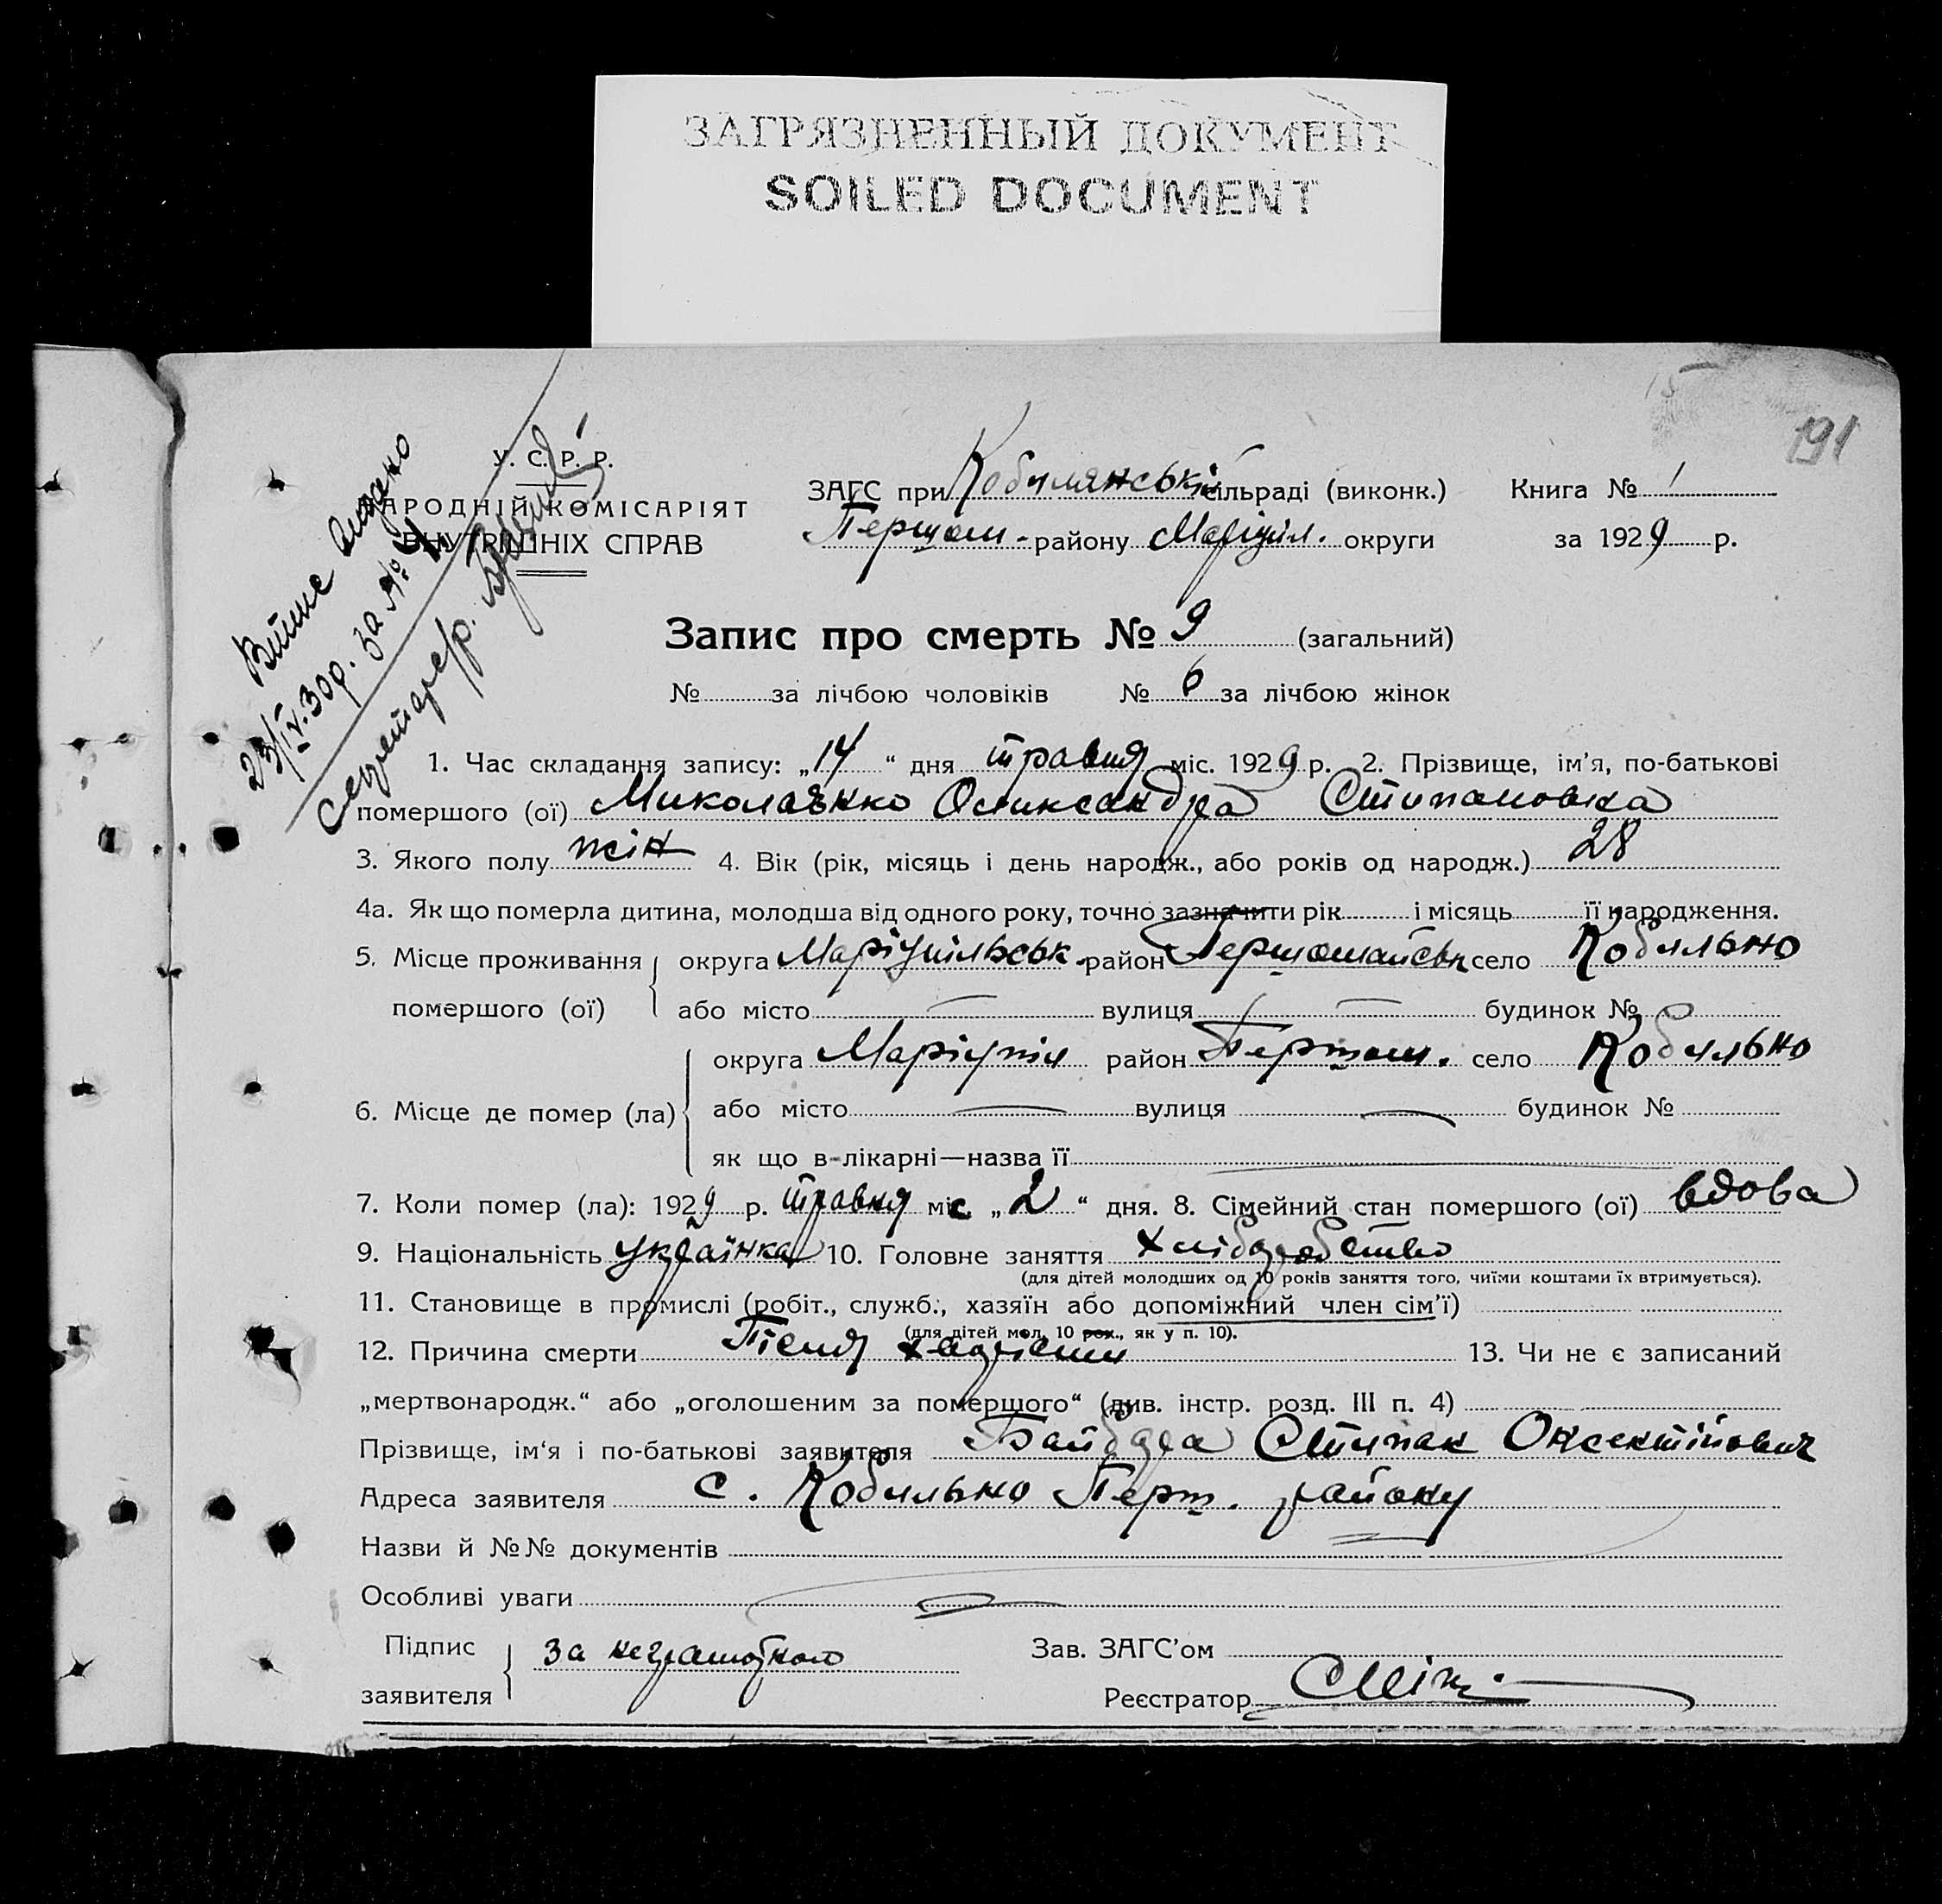 ЗАГРЯЗНЕННЫЙ ДОКУМЕНТ
SOILED DOCUMENT
191
У. С. Р. Р.
НАРОДНІЙ КОМІСАРІЯТ
ВНУТРІШНІХ СПРАВ
Витяг видано
23/IV.30р. за №
ЗАГС при Кобилянській сільраді (виконк.) Книга № 1
Першом. району Маріупіл. округи за 1929 р.
Запис про смерть № 9 (загальний)
№ за лічбою чоловіків № 6 за лічбою жінок
1. Час складання запису: „14“ дня травня міс. 1929 р. 2. Прізвище, ім'я, по-батькові
помершого (ої) Олександра Степановна
3. Якого полу жін 4. Вік (рік, місяць і день народж., або років од народж.) 28
4а. Як що померла дитина, молодша від одного року, точно зазначити рік і місяць її народження.
5. Місце проживання помершого (ої) округа Маріупільськ. район Першомайськ село Кобильно
або місто — вулиця — будинок №
6. Місце де помер (ла) округа Маріупіл район Першом. село Кобильно
або місто — вулиця — будинок №
як що в-лікарні—назва її
7. Коли помер (ла): 1929 р. травня міс „2“ дня. 8. Сімейний стан помершого (ої) вдова
9. Національність українка 10. Головне заняття хліборобство
(для дітей молодших од 10 років заняття того, чиїми коштами їх втримується).
11. Становище в промислі (робіт., служб., хазяїн або допоміжний член сім'ї)
(для дітей мол. 10 рок., як у п. 10).
12. Причина смерти 13. Чи не є записаний
„мертвонародж.“ або „оголошеним за померщого“ (див. інстр. розд. III п. 4)
Прізвище, ім'я і по-батькові заявителя Байбара Степан
Адреса заявителя с. Кобильно Перш. району
Назви й №№ документів
Особливі уваги
Підпис заявителя за неграмотного Зав. ЗАГС'ом
Реєстратор